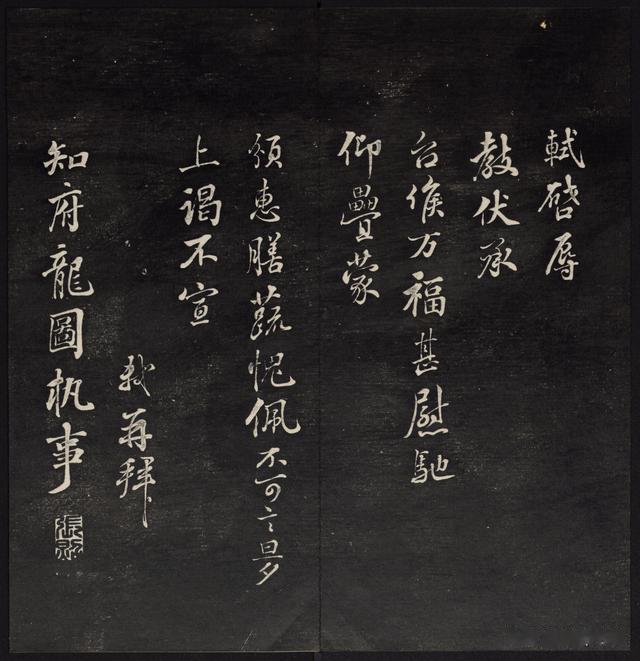 軾啓辱
教伏承
台候万福甚慰馳
仰疊蒙
頒惠膳蔬愧佩不可言旦夕
上謁不宣
軾再拜
知府龍圖執事